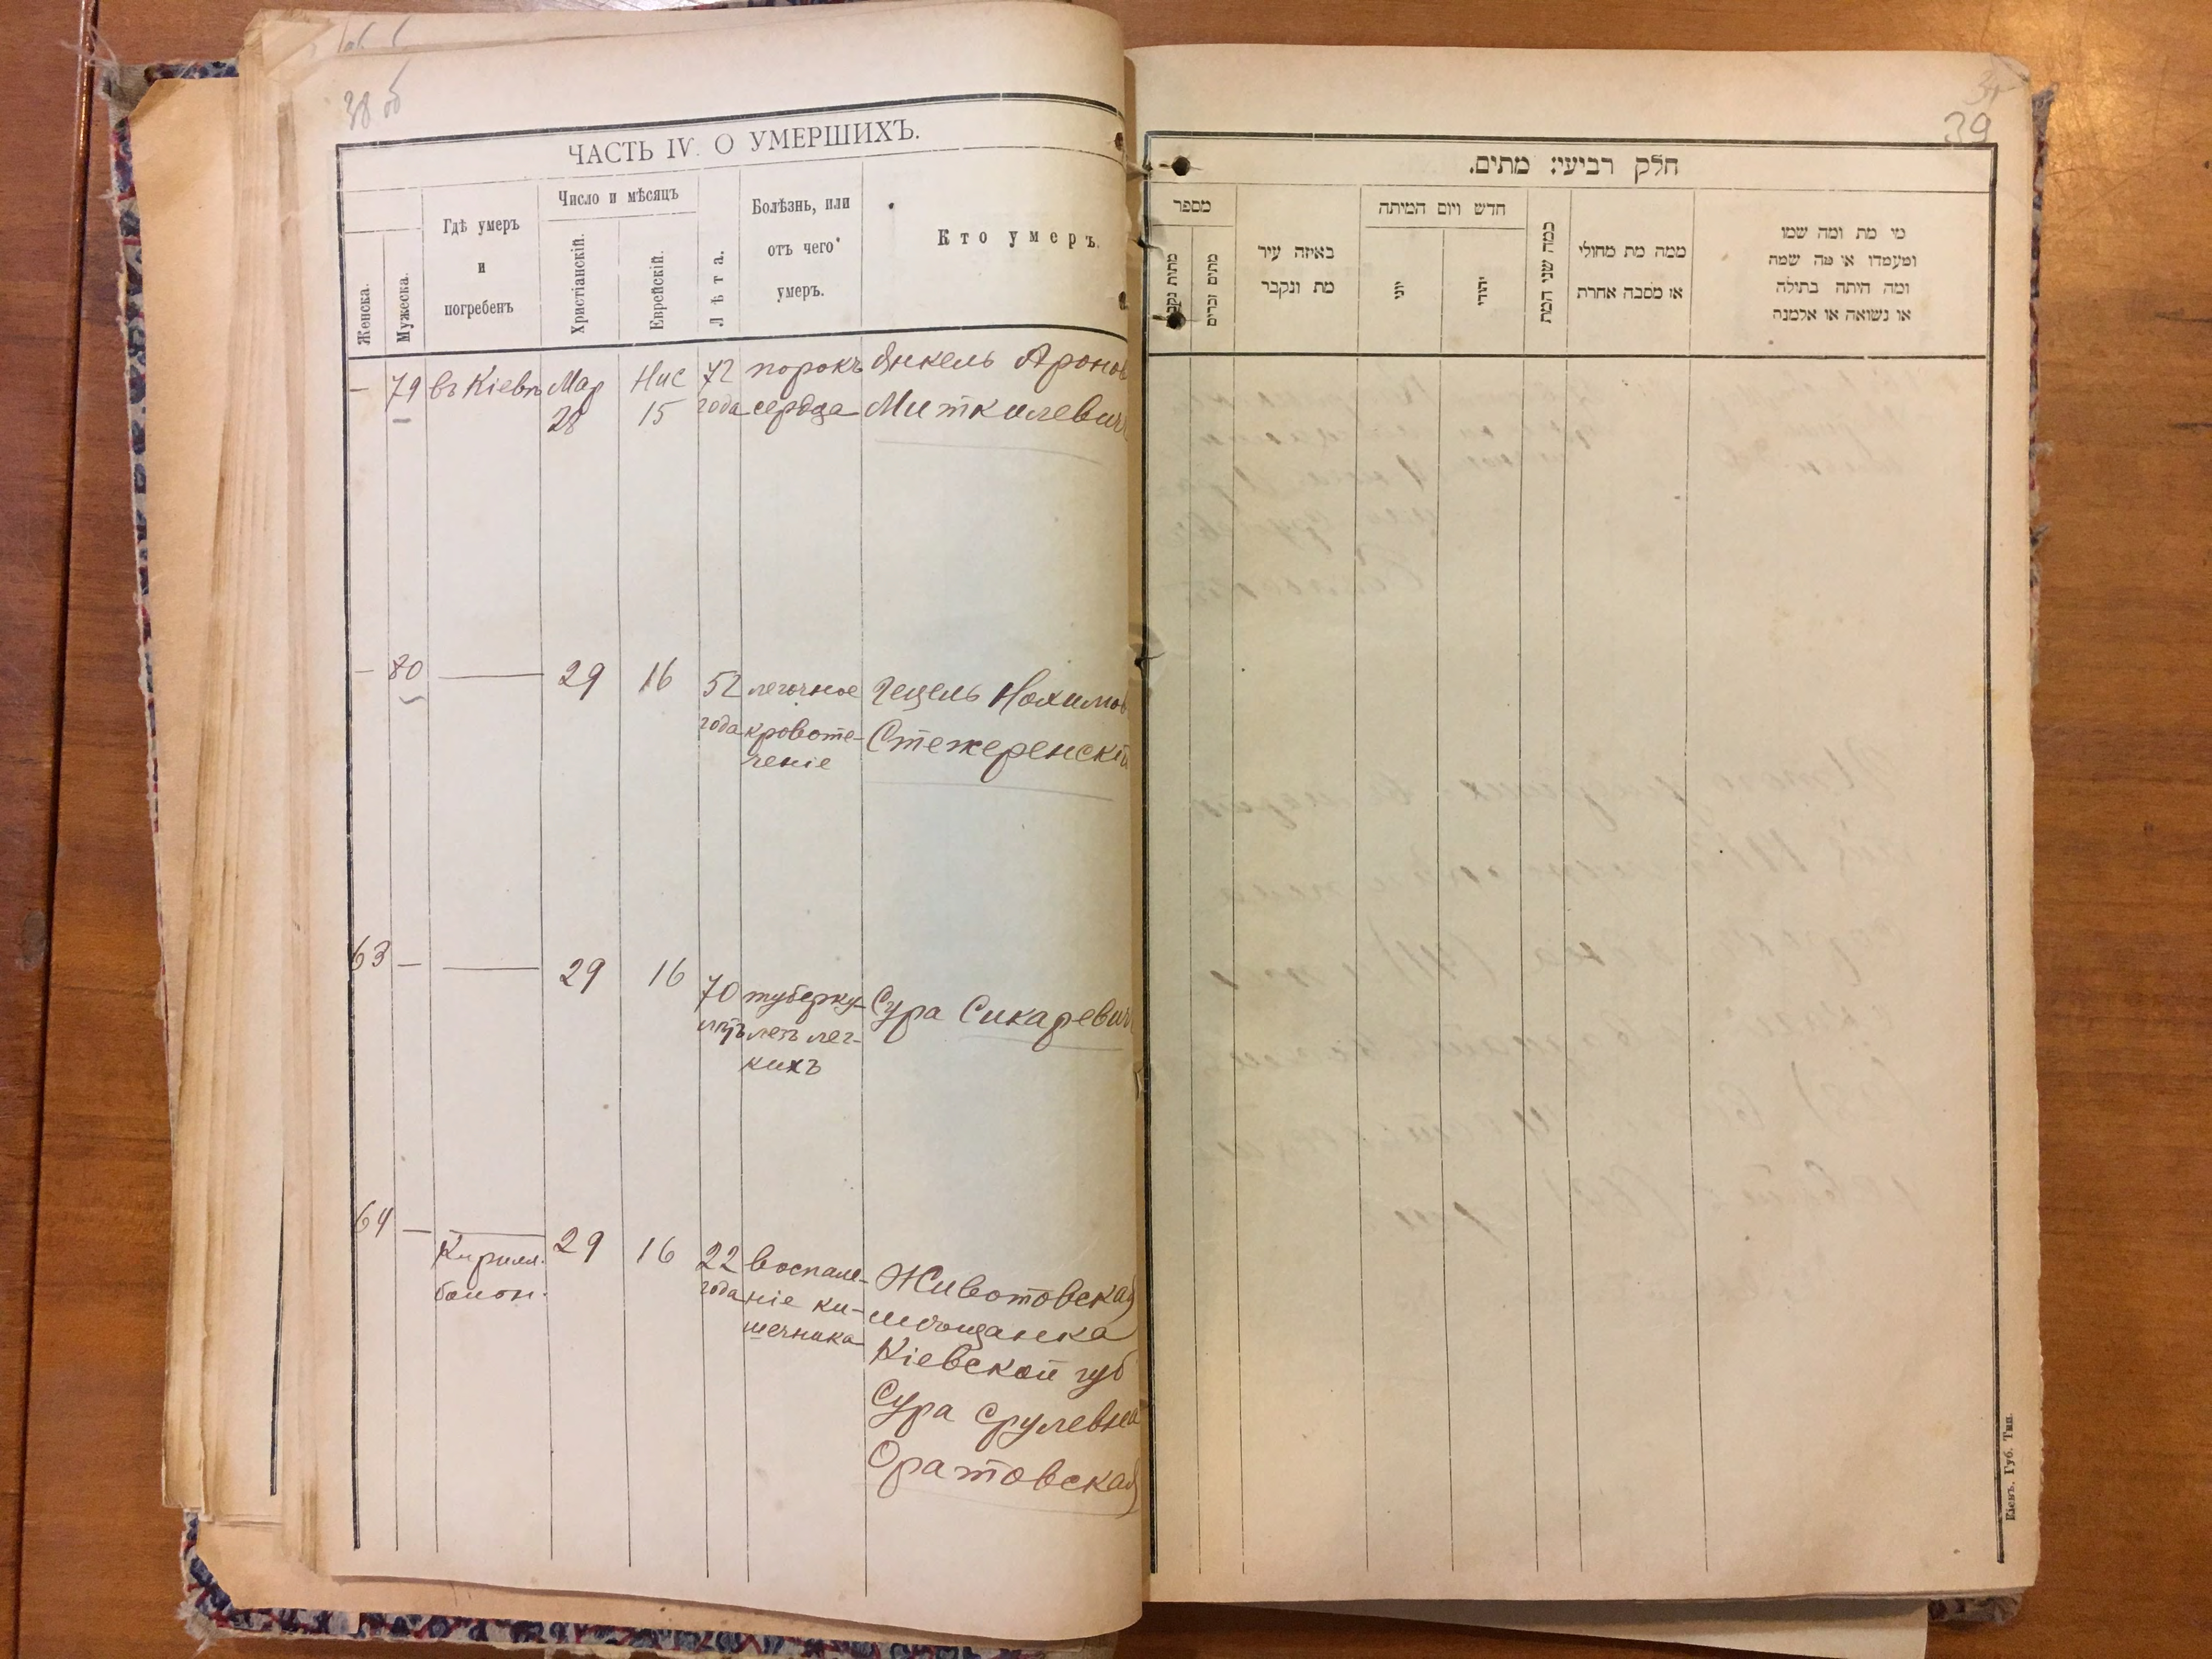 38 об
ЧАСТЬ IV. О УМЕРШИХЪ.
Женска.
Мужеска.
Гдѣ умеръ
и
погребенъ
Число и мѣсяцъ
Христіанскій.
Еврейскій.
Лѣта.
Болѣзнь, или
отъ чего
умеръ.
Кто умеръ.
— 79 въ Кіевѣ Мар Нис 72 порокъ Янкель Аронов
28 15 года сердца Миткилевич
— 80 —— 29 16 52 легочное Гецель Нохимов
года кровоте- Стежеренскій
ченіе
63 — —— 29 16 70 туберку- Сура Сикаревич
лѣтъ лезъ лег-
кихъ
64 — —— 29 16 22 воспале- Животовская
Кирилл. года ніе ки- мѣщанка
болон. шечника Кіевской губ
Сура Срулевна
Оратовская
39
חלק רביעי: מתים.
מספר
מתות נקבות
מתים זכרים
באיזה עיר
מת ונקבר
חדש ויום המיתה
יוני
יהודי
כמה שני המת
ממה מת מחולי
או מסבה אחרת
מי מת ומה שמו
ומעמדו או מה שמה
ומה היתה בתולה
או נשואה או אלמנה
Кіевъ. Губ. Тип.